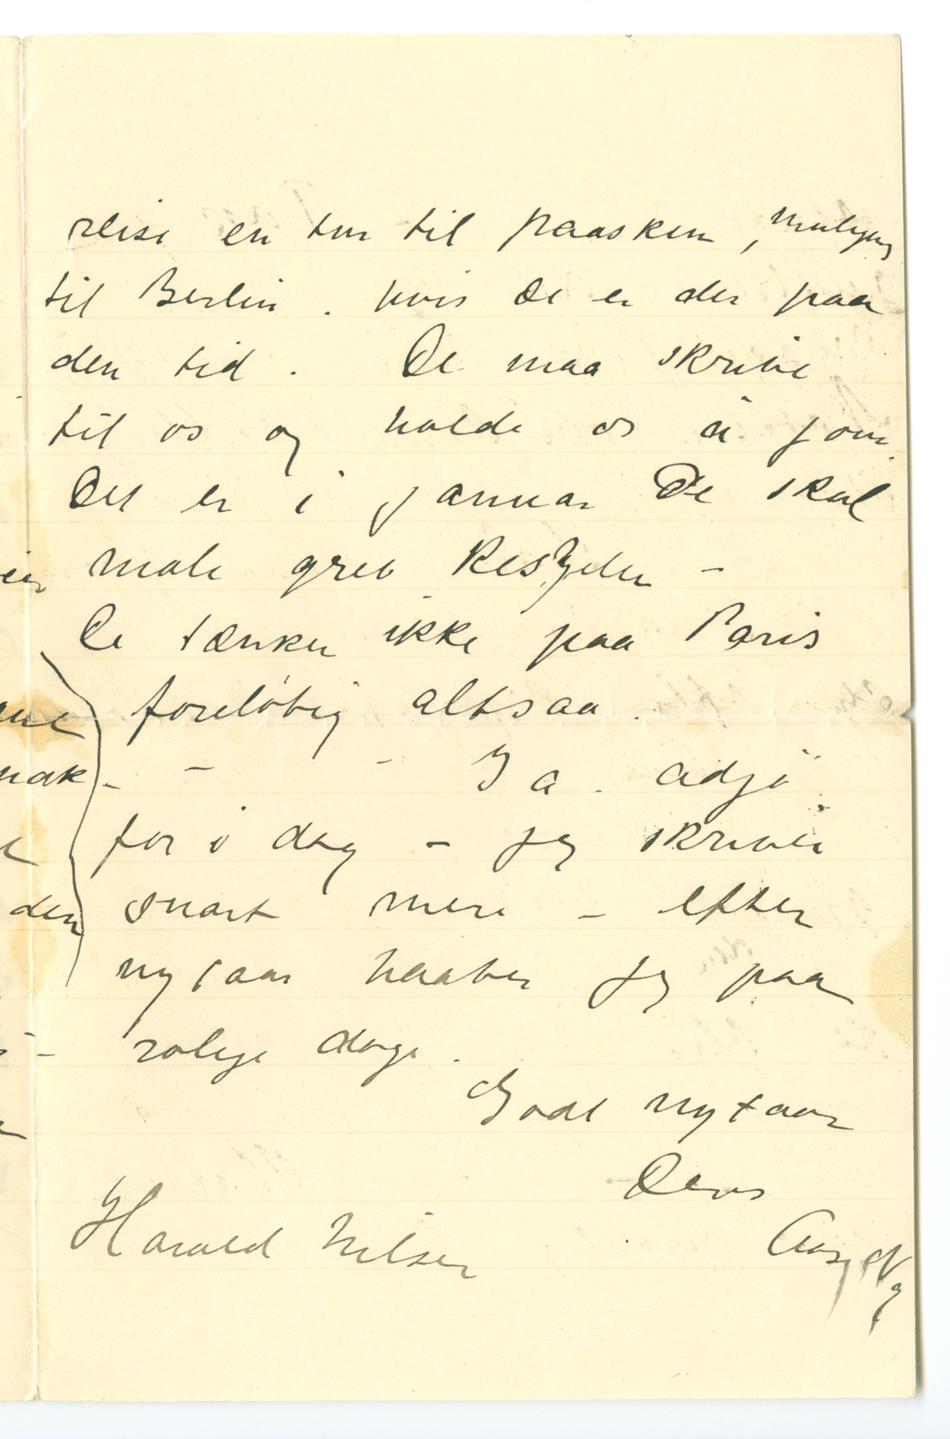 reise en tur til paasken, muligens
til Berlin. hvis De er der paa
den tid. De maa skrive
til os og holde os à jour.
Det er i januar De skal
male grev Kessler –
De tænker ikke paa Paris
foreløbig altsaa.
– – Ja. adjø
for i dag – jeg skriver
snart mere – efter
nytaar haaber jeg paa
rolige dage.
Godt nytaar
Deres
Harald Nilsen